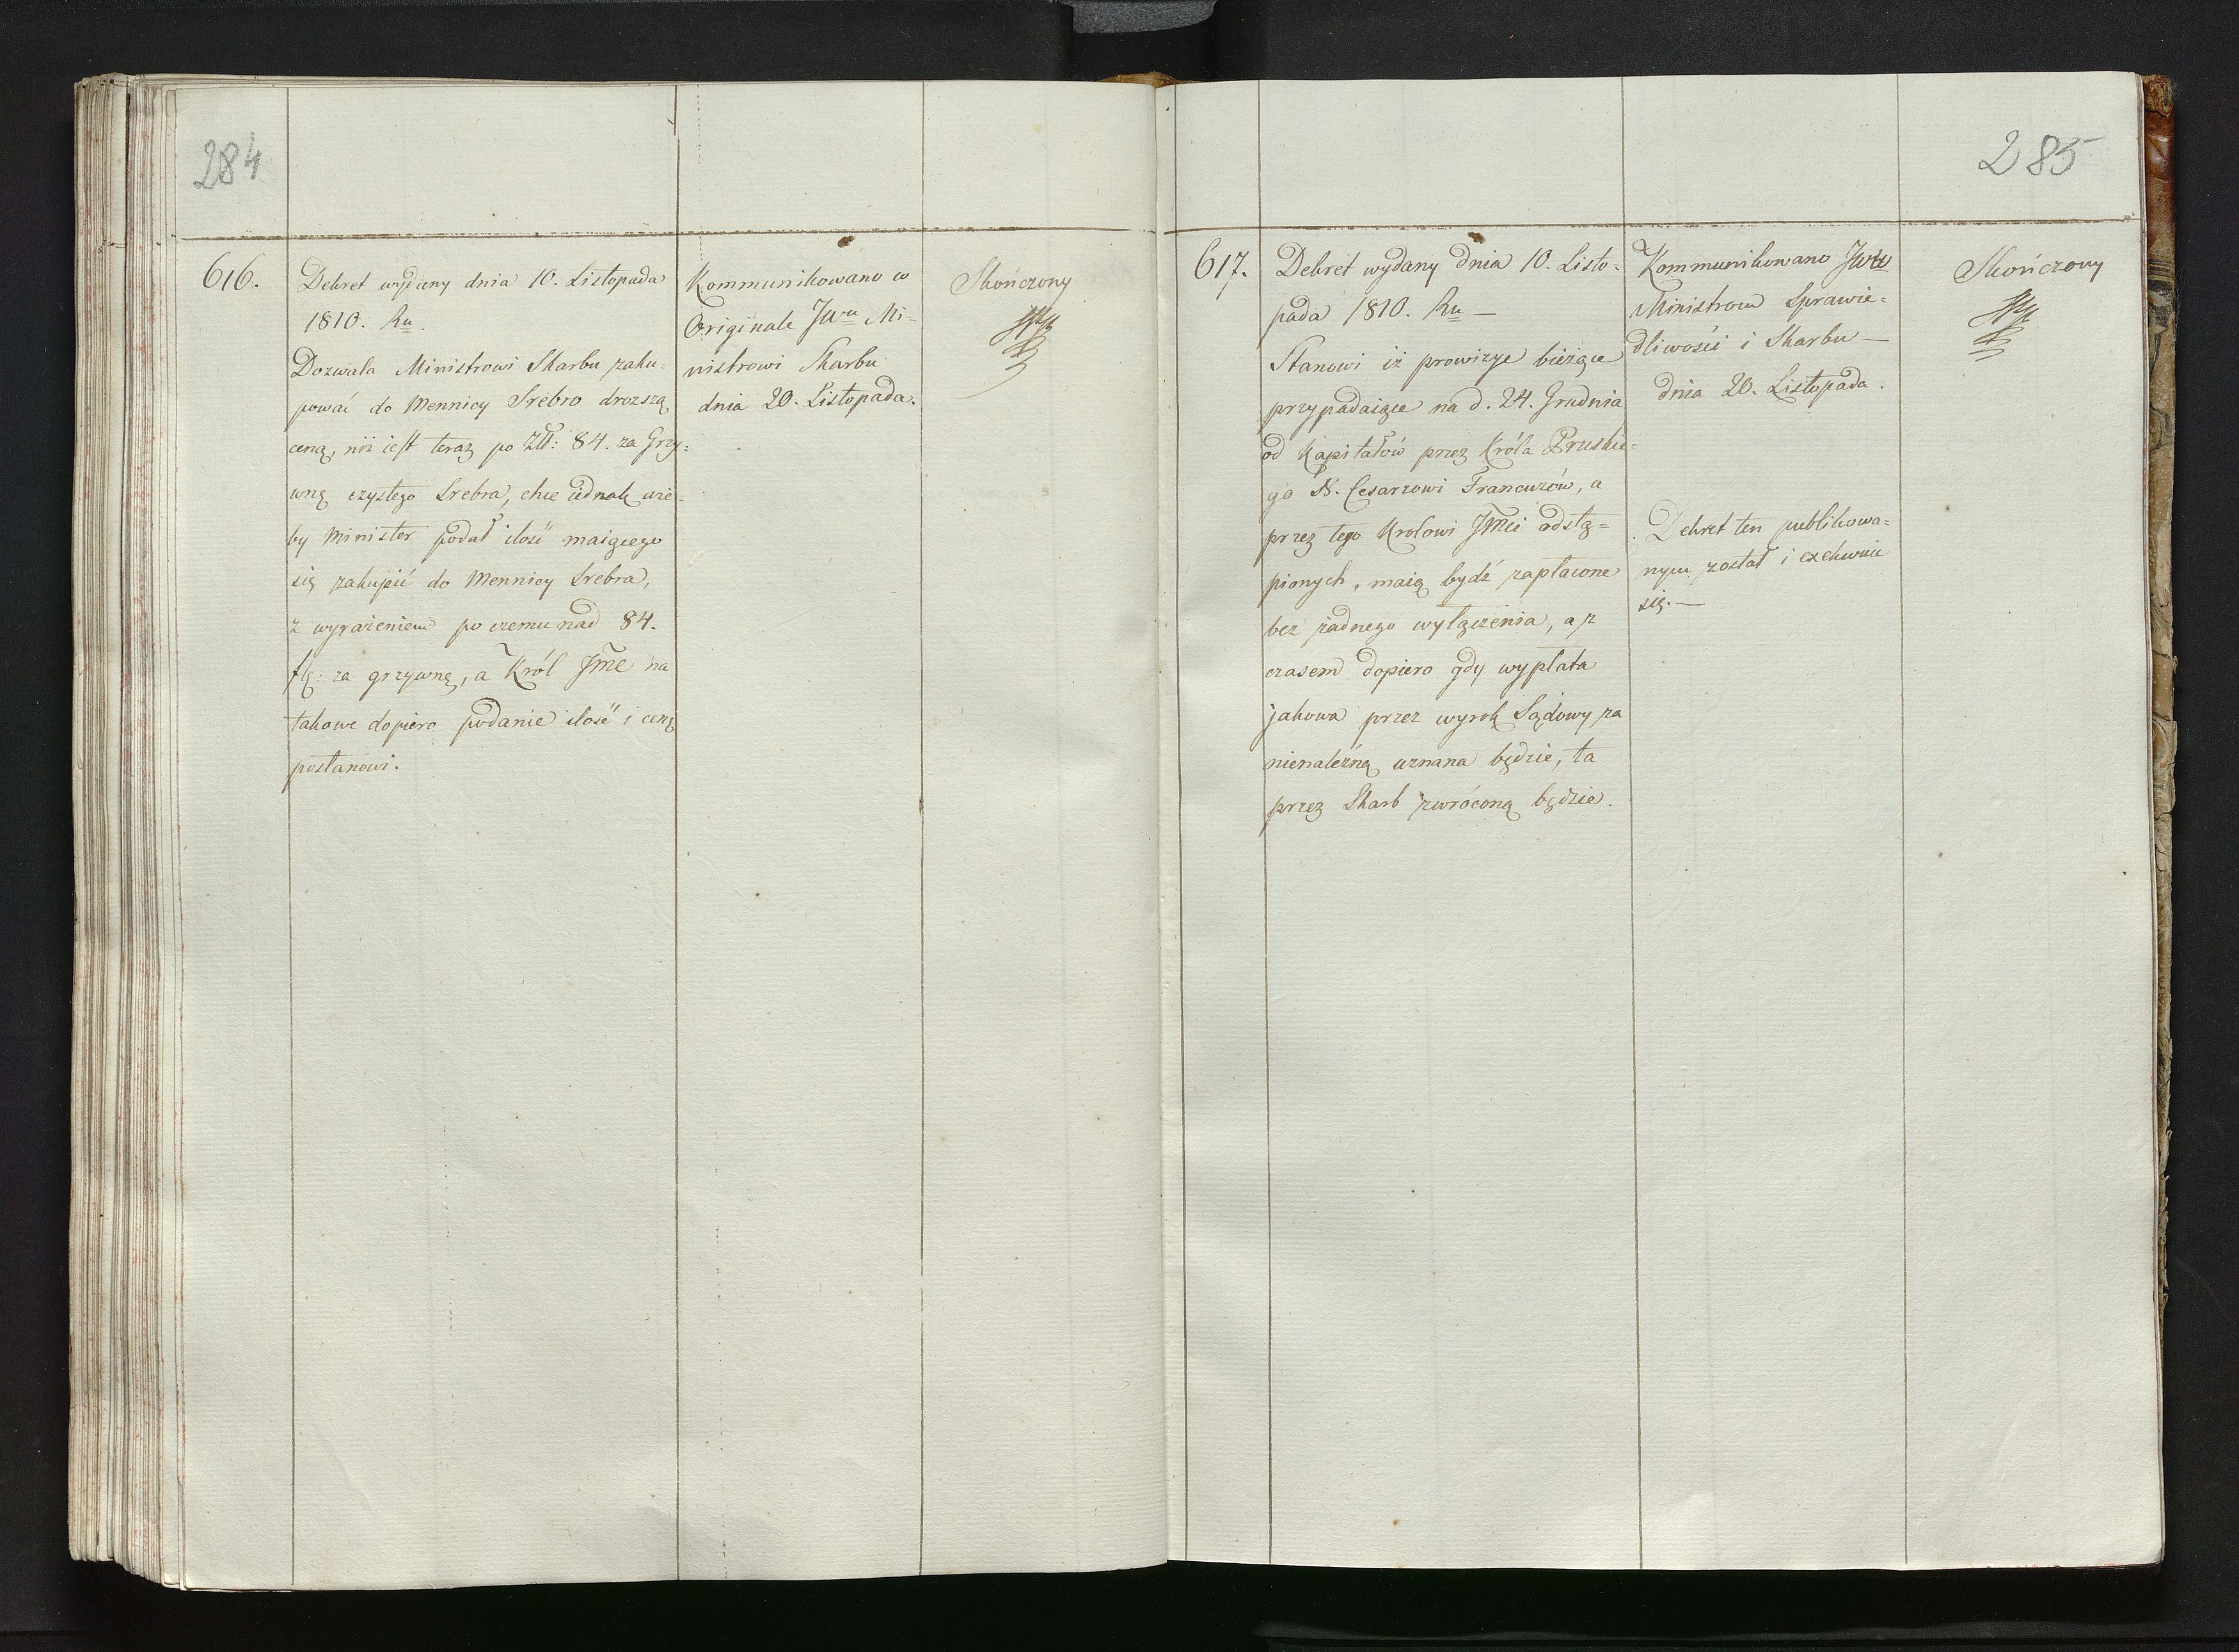 284
616.
Dekret wydany dnia 10. Listopada
1810. Ru.
Dozwala Ministrowi Skarbu zaku=
pować do Mennicy Srebro drozszą
ceną, niż iest teraz po Zł: 84. za Grzy=
wnę czystego Srebra, chce iednak aże=
by Minister podał ilość maiącego
się zakupić do Mennicy Srebra,
z wyrażeniem po czemu nad 84.
fl: za grzywnę, a Król Jmć na
takowe dopiero podanie ilość i cenę
postanowi.
Kommunikowano w
Originale JWu Mi=
nistrowi Skarbu
dnia 20. Listopada.
Skończony
285
617.
Dekret wydany dnia 10. Listo=
pada 1810. Ru —
Stanowi iż prowizye bieżące
przypadaiące na d. 24. Grudnia
od Kapitałów przez Króla Pruskie=
go N. Cesarzowi Francuzów, a
przez tego Krolowi Jmci odstą=
pionych, maią bydź zapłacone
bez żadnego wyłączenia, a z
czasem dopiero gdy wypłata
jakowa przez wyrok Sądowy za
nienależną uznana będzie, ta
przez Skarb zwróconą będzie.
Kommunikowano JWW
Ministrom Sprawie=
dliwości i Skarbu —
dnia 20. Listopada.
Dekret ten publikowa=
nym został i exekwuie
się. —
Skończony